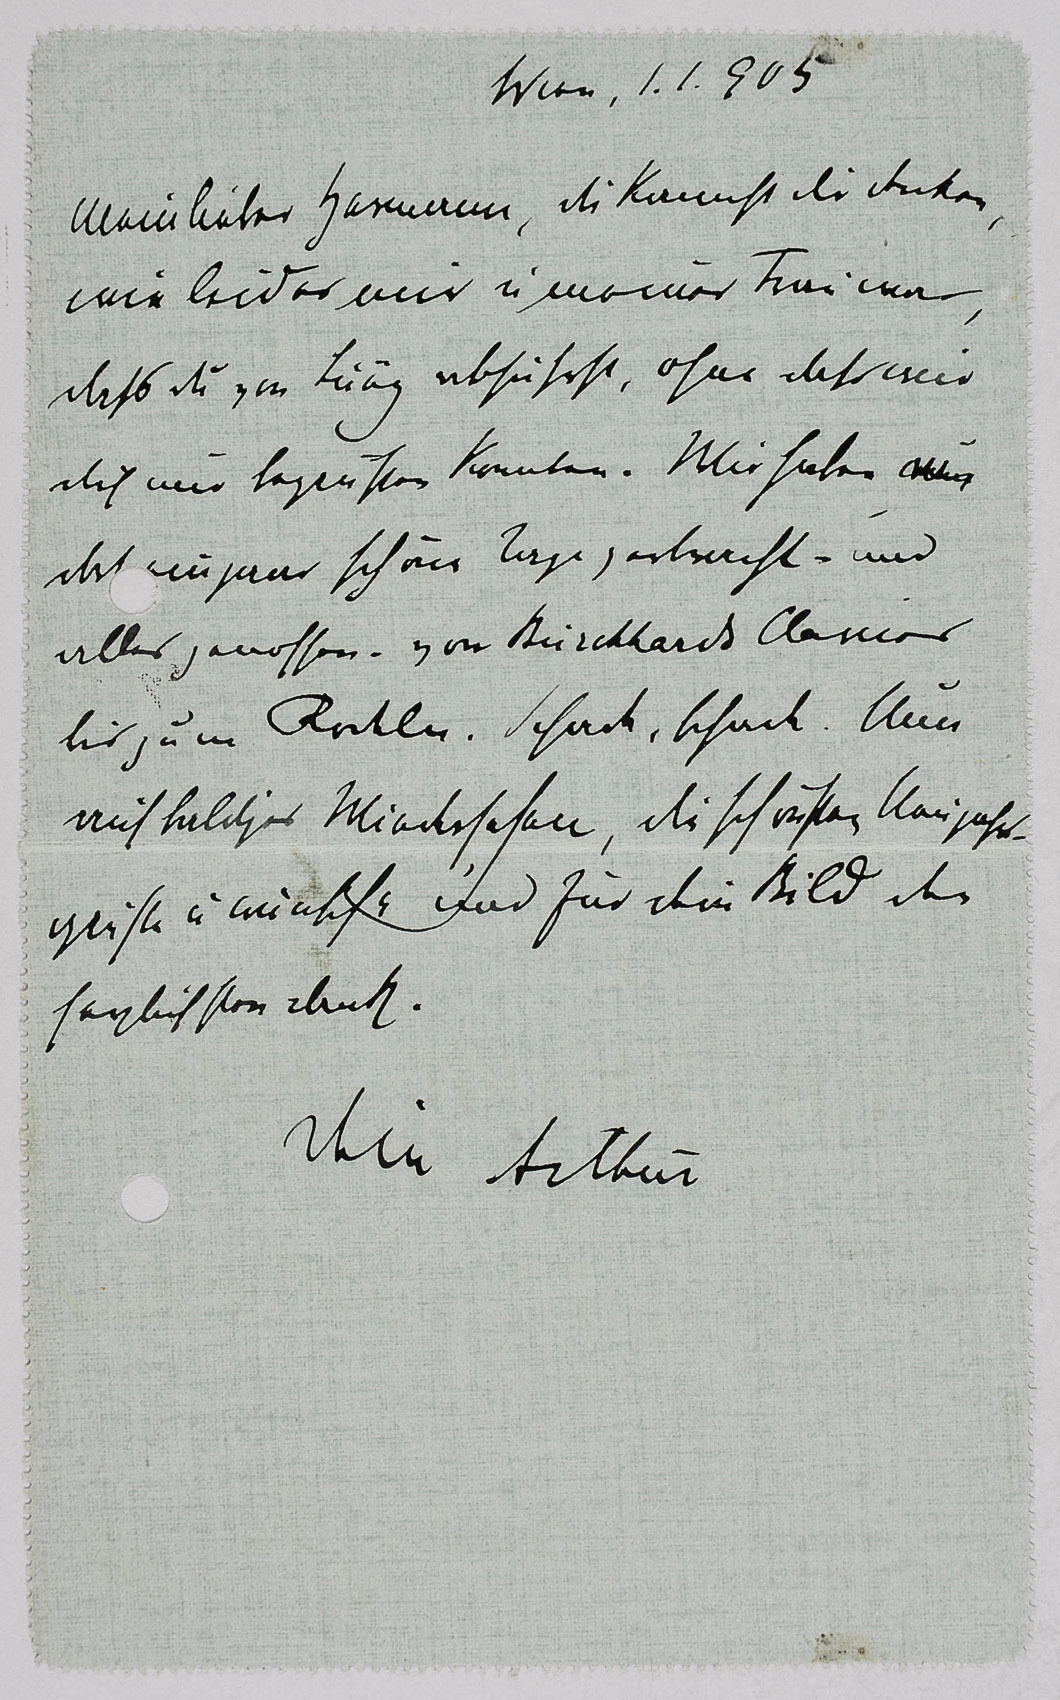 Wien, 1. 1. 905
Mein lieber Hermann, du kannst dir denken,
wie leid es mir u meiner Frau war,
daß du von Lueg abfuhrst, ohne daß wir
dich nur begrüßen konnten. Wir haben
dort ein paar schöne Tage verbracht – und
alles genossen – von Burckhards Clavier
bis zum Rodeln. Schad, schad. Nun
auf baldiges Wiedersehen, die schönsten Neujahrs-
grüße u wünsche und für dein Bild den
herzlichsten Dank.
Dein Arthur